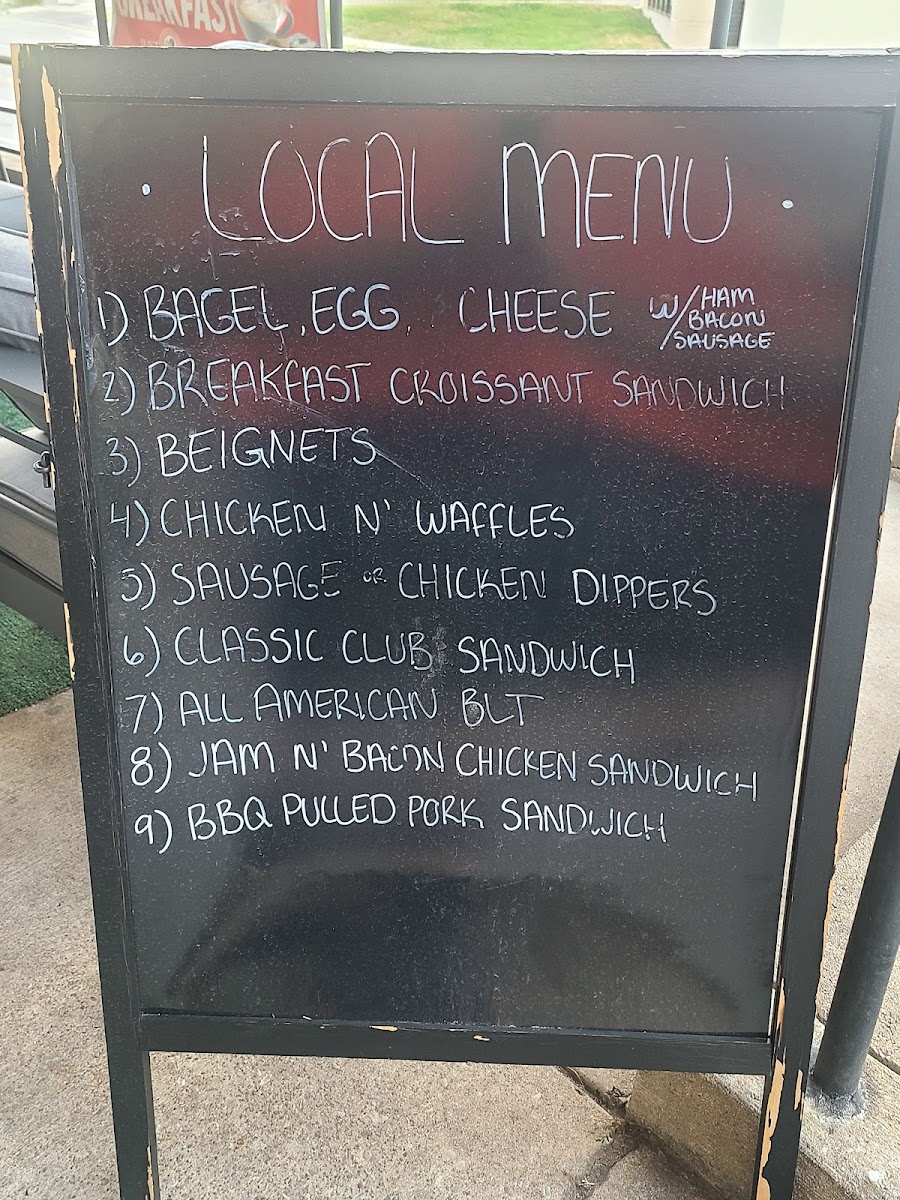 BREAKFAST
· LOCAL MENU ·
1) BAGEL, EGG, CHEESE W/HAM
/BACON
/SAUSAGE
2) BREAKFAST CROISSANT SANDWICH
3) BEIGNETS
4) CHICKEN N' WAFFLES
5) SAUSAGE OR CHICKEN DIPPERS
6) CLASSIC CLUB SANDWICH
7) ALL AMERICAN BLT
8) JAM N' BACON CHICKEN SANDWICH
9) BBQ PULLED PORK SANDWICH